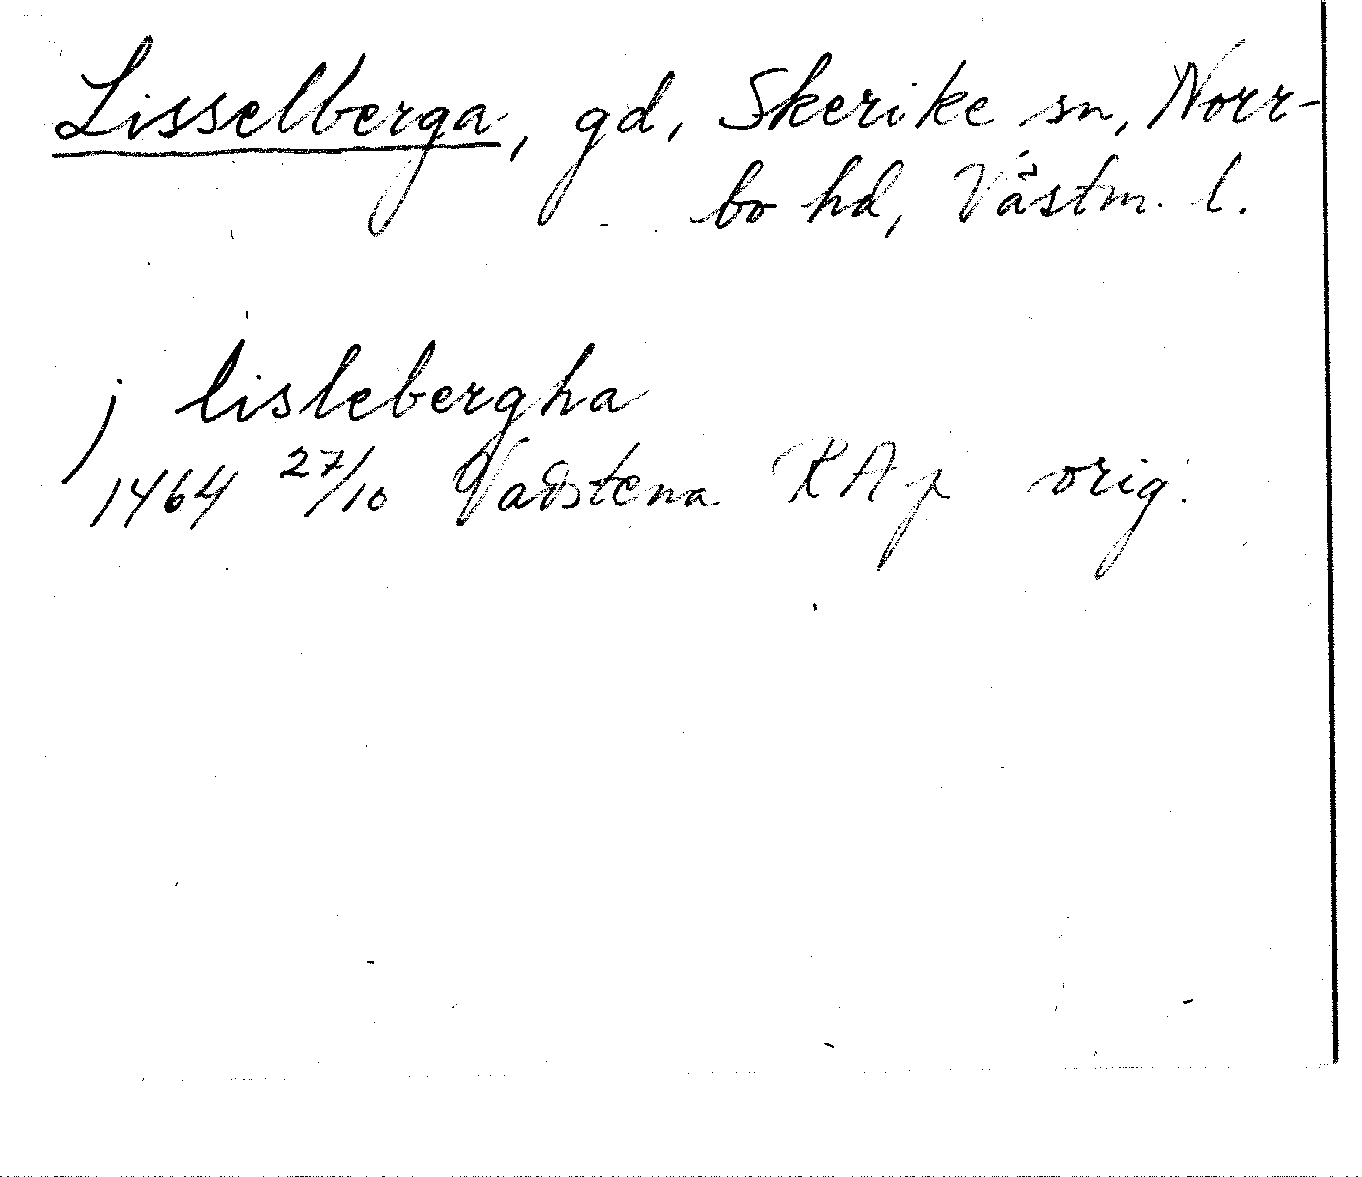 Lisselberga, gd, Skerike sn, Norr-
bo hd, Västm. l.
j lislebergha
1464 27/10 Vadstena RAp orig.